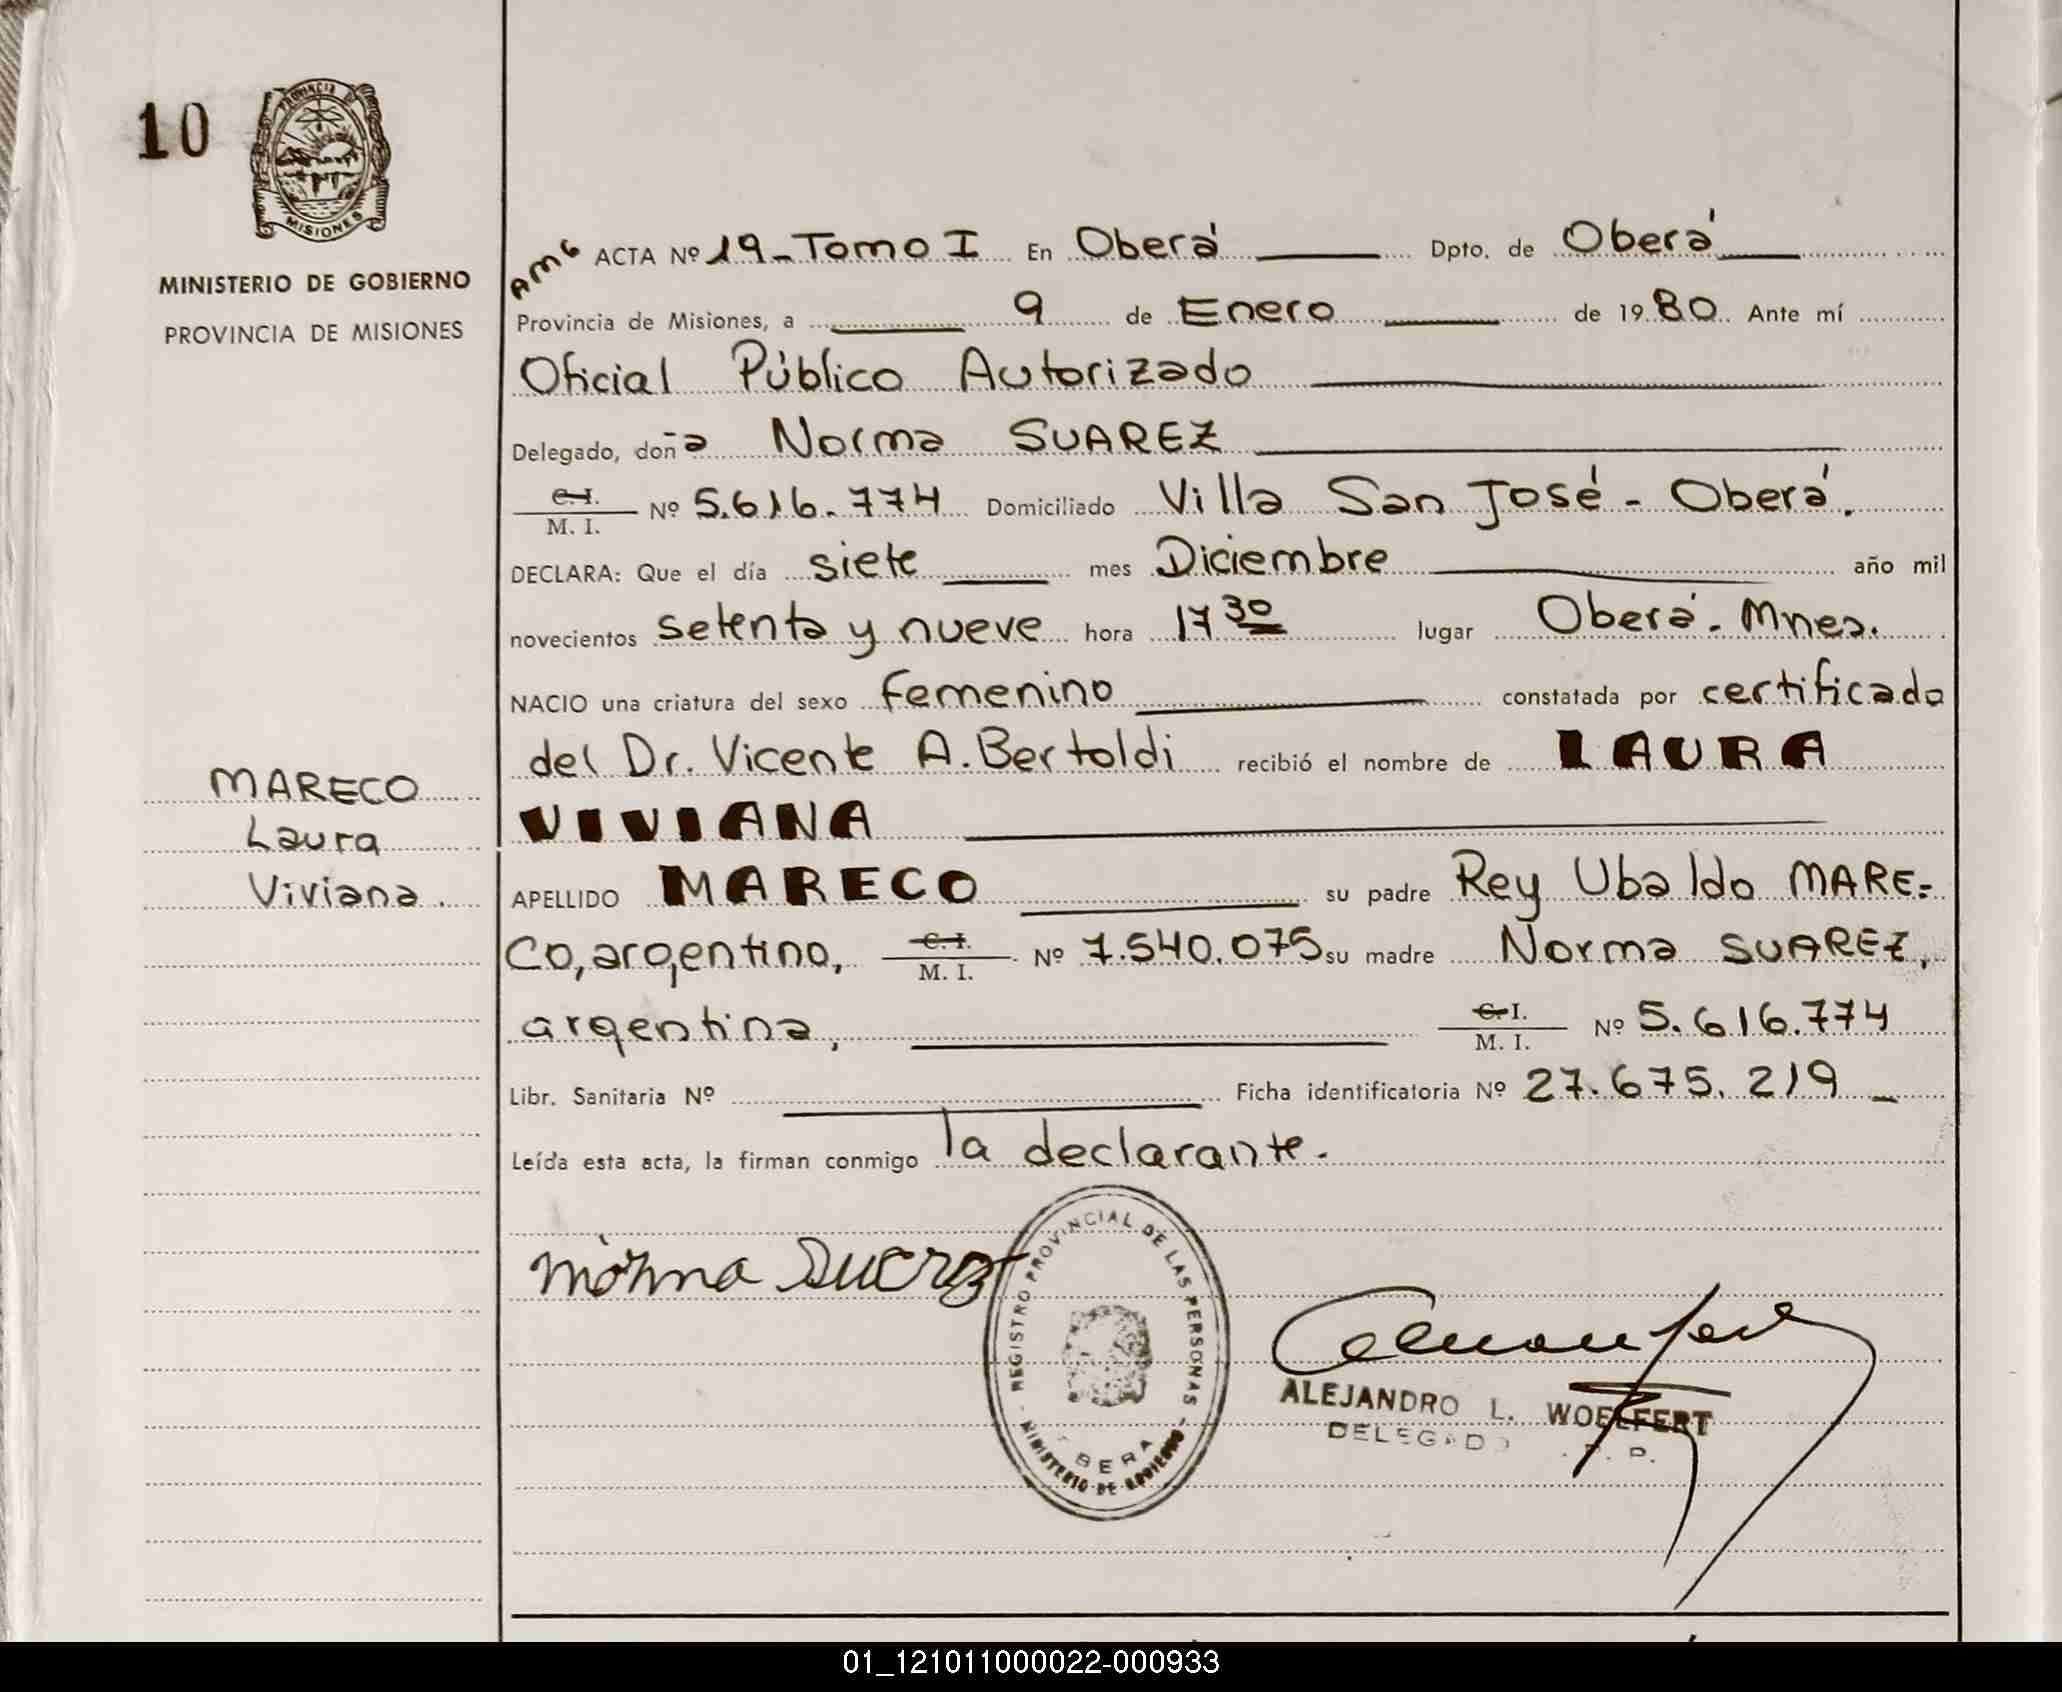 10
PROVINCIA DE
MISIONES
MINISTERIO DE GOBIERNO
PROVINCIA DE MISIONES
MARECO
Laura
Viviana.
AMG ACTA Nº 19-Tomo I En Oberá Dpto. de Oberá
Provincia de Misiones, a 9 de Enero de 1980. Ante mí
Oficial Público Autorizado
Delegado, doña Norma SUAREZ
C.I. / M. I. Nº 5.616.774 Domiciliado Villa San José - Oberá.
DECLARA: Que el día siete mes Diciembre año mil
novecientos setenta y nueve hora 17 30 lugar Oberá. Mnes.
NACIO una criatura del sexo femenino constatada por certificado
del Dr. Vicente A. Bertoldi recibió el nombre de LAURA
VIVIANA
APELLIDO MARECO su padre Rey Ubaldo MARE=
CO, argentino, C.I. / M. I. Nº 7.540.075 su madre Norma SUAREZ,
argentina, C.I. / M. I. Nº 5.616.774
Libr. Sanitaria Nº Ficha identificatoria Nº 27.675.219_
Leída esta acta, la firman conmigo la declarante.
Norma Suarez
REGISTRO PROVINCIAL DE LAS PERSONAS - MINISTERIO DE GOBIERNO -
BERA
ALEJANDRO L. WOELFERT
DELEGADO R. P. P.
01_121011000022-000933